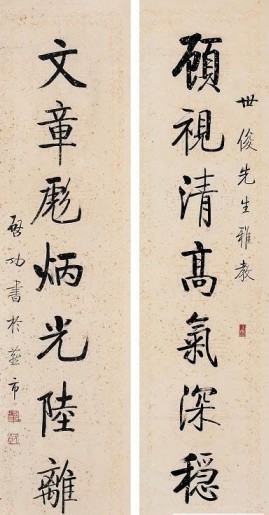 世俊先生雅教
顾視清高氣深穏
文章彪炳光陸離
啓功書於燕市